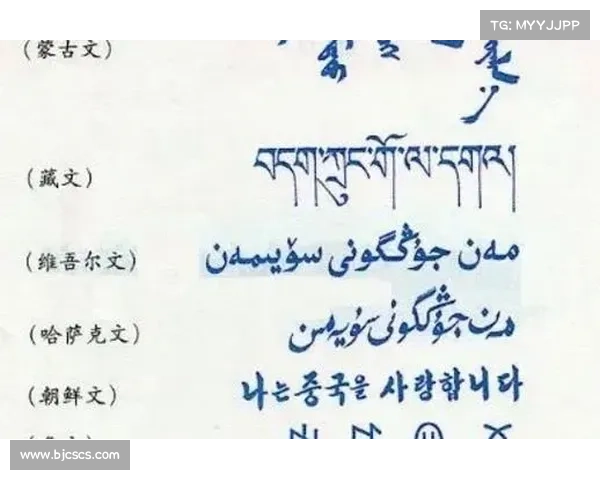 TG: MYYJJPP
(蒙古文)
(藏文) བདག་ཀྲུང་གོ་ལ་དགའ།
(维吾尔文) مەن جۇڭگونى سۆيىمەن
(哈萨克文) مەن جۇڭگونى سۇيەمىن
(朝鲜文) 나는 중국을 사랑합니다
www.bjcscs.com